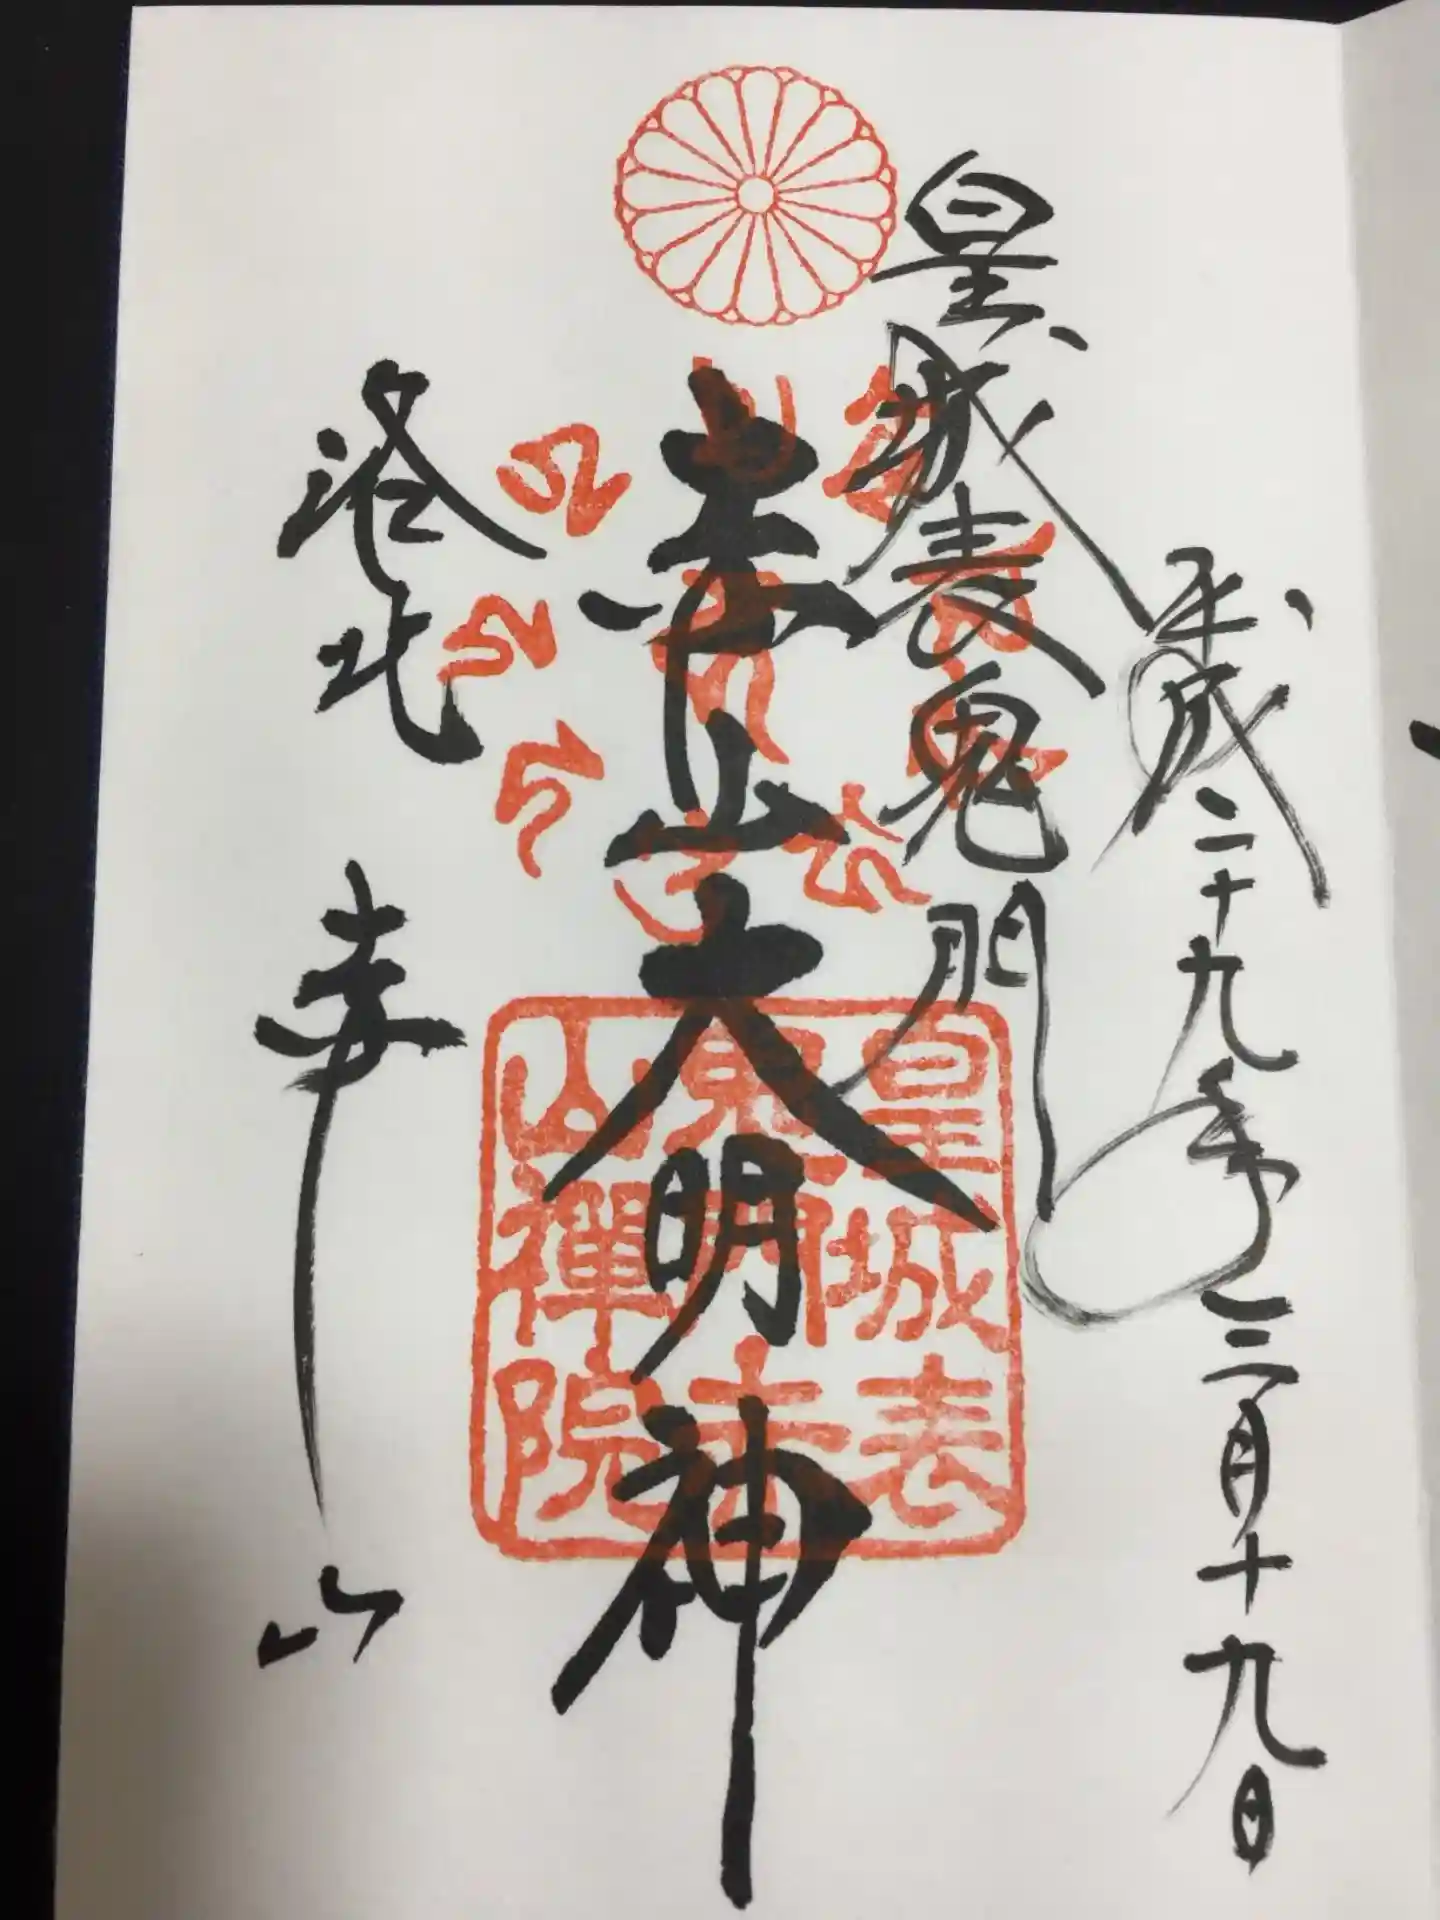 平成二十九年三月十九日
皇城表鬼門
赤山大明神
洛北 赤山
皇城表
鬼門赤
山禪院